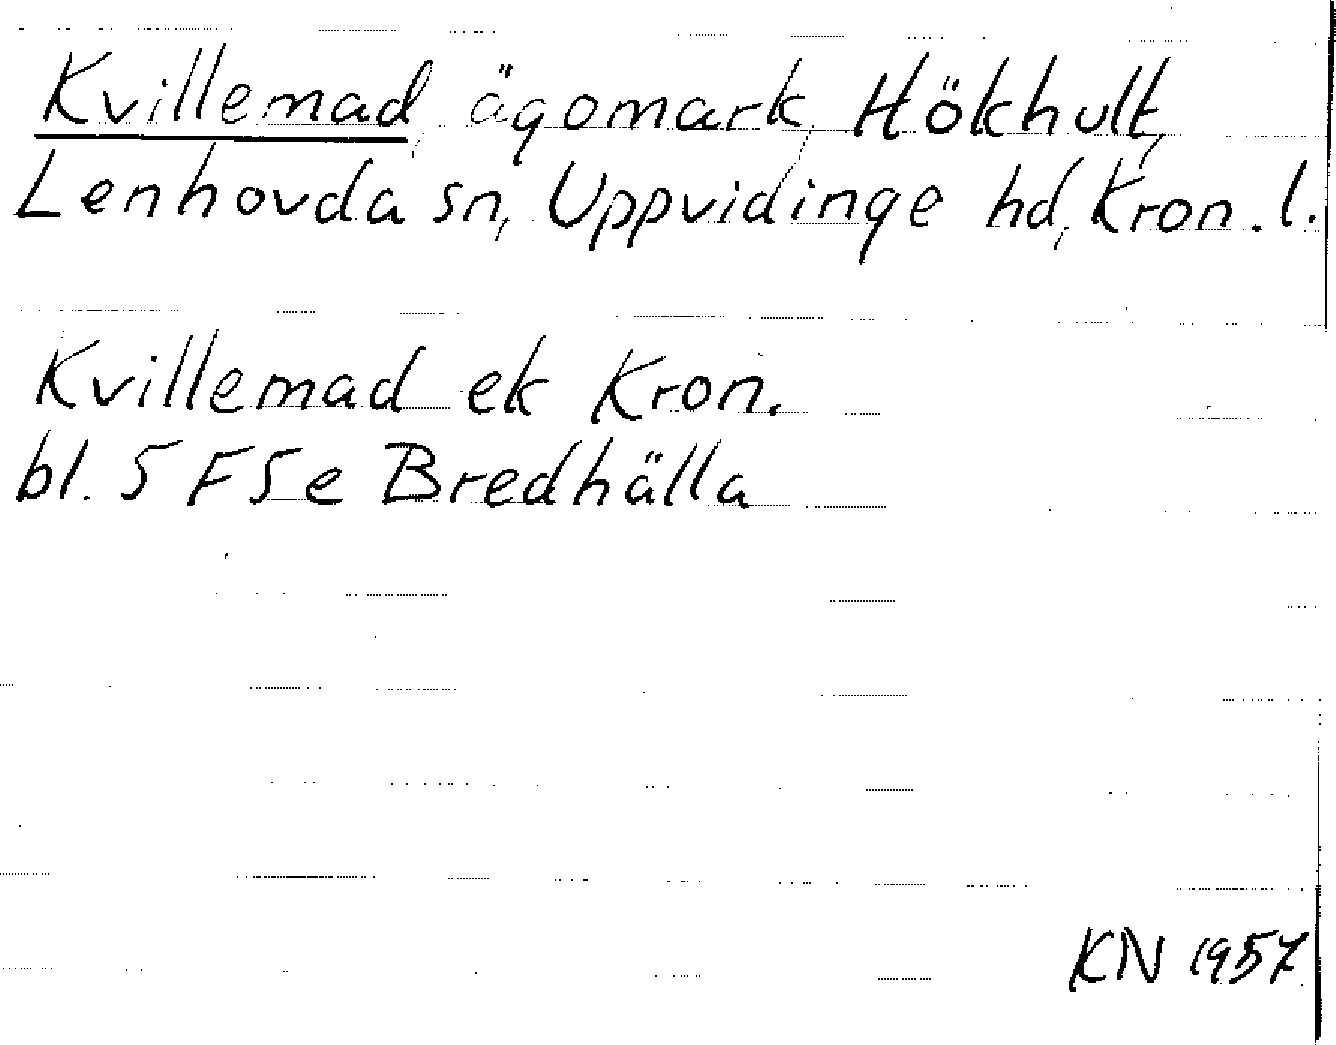 Kvillemad, ägomark, Hökhult,
Lenhovda sn, Uppvidinge hd, Kron. l.
Kvillemad ek Kron.
bl. 5 F 5e Bredhälla
KN 1957